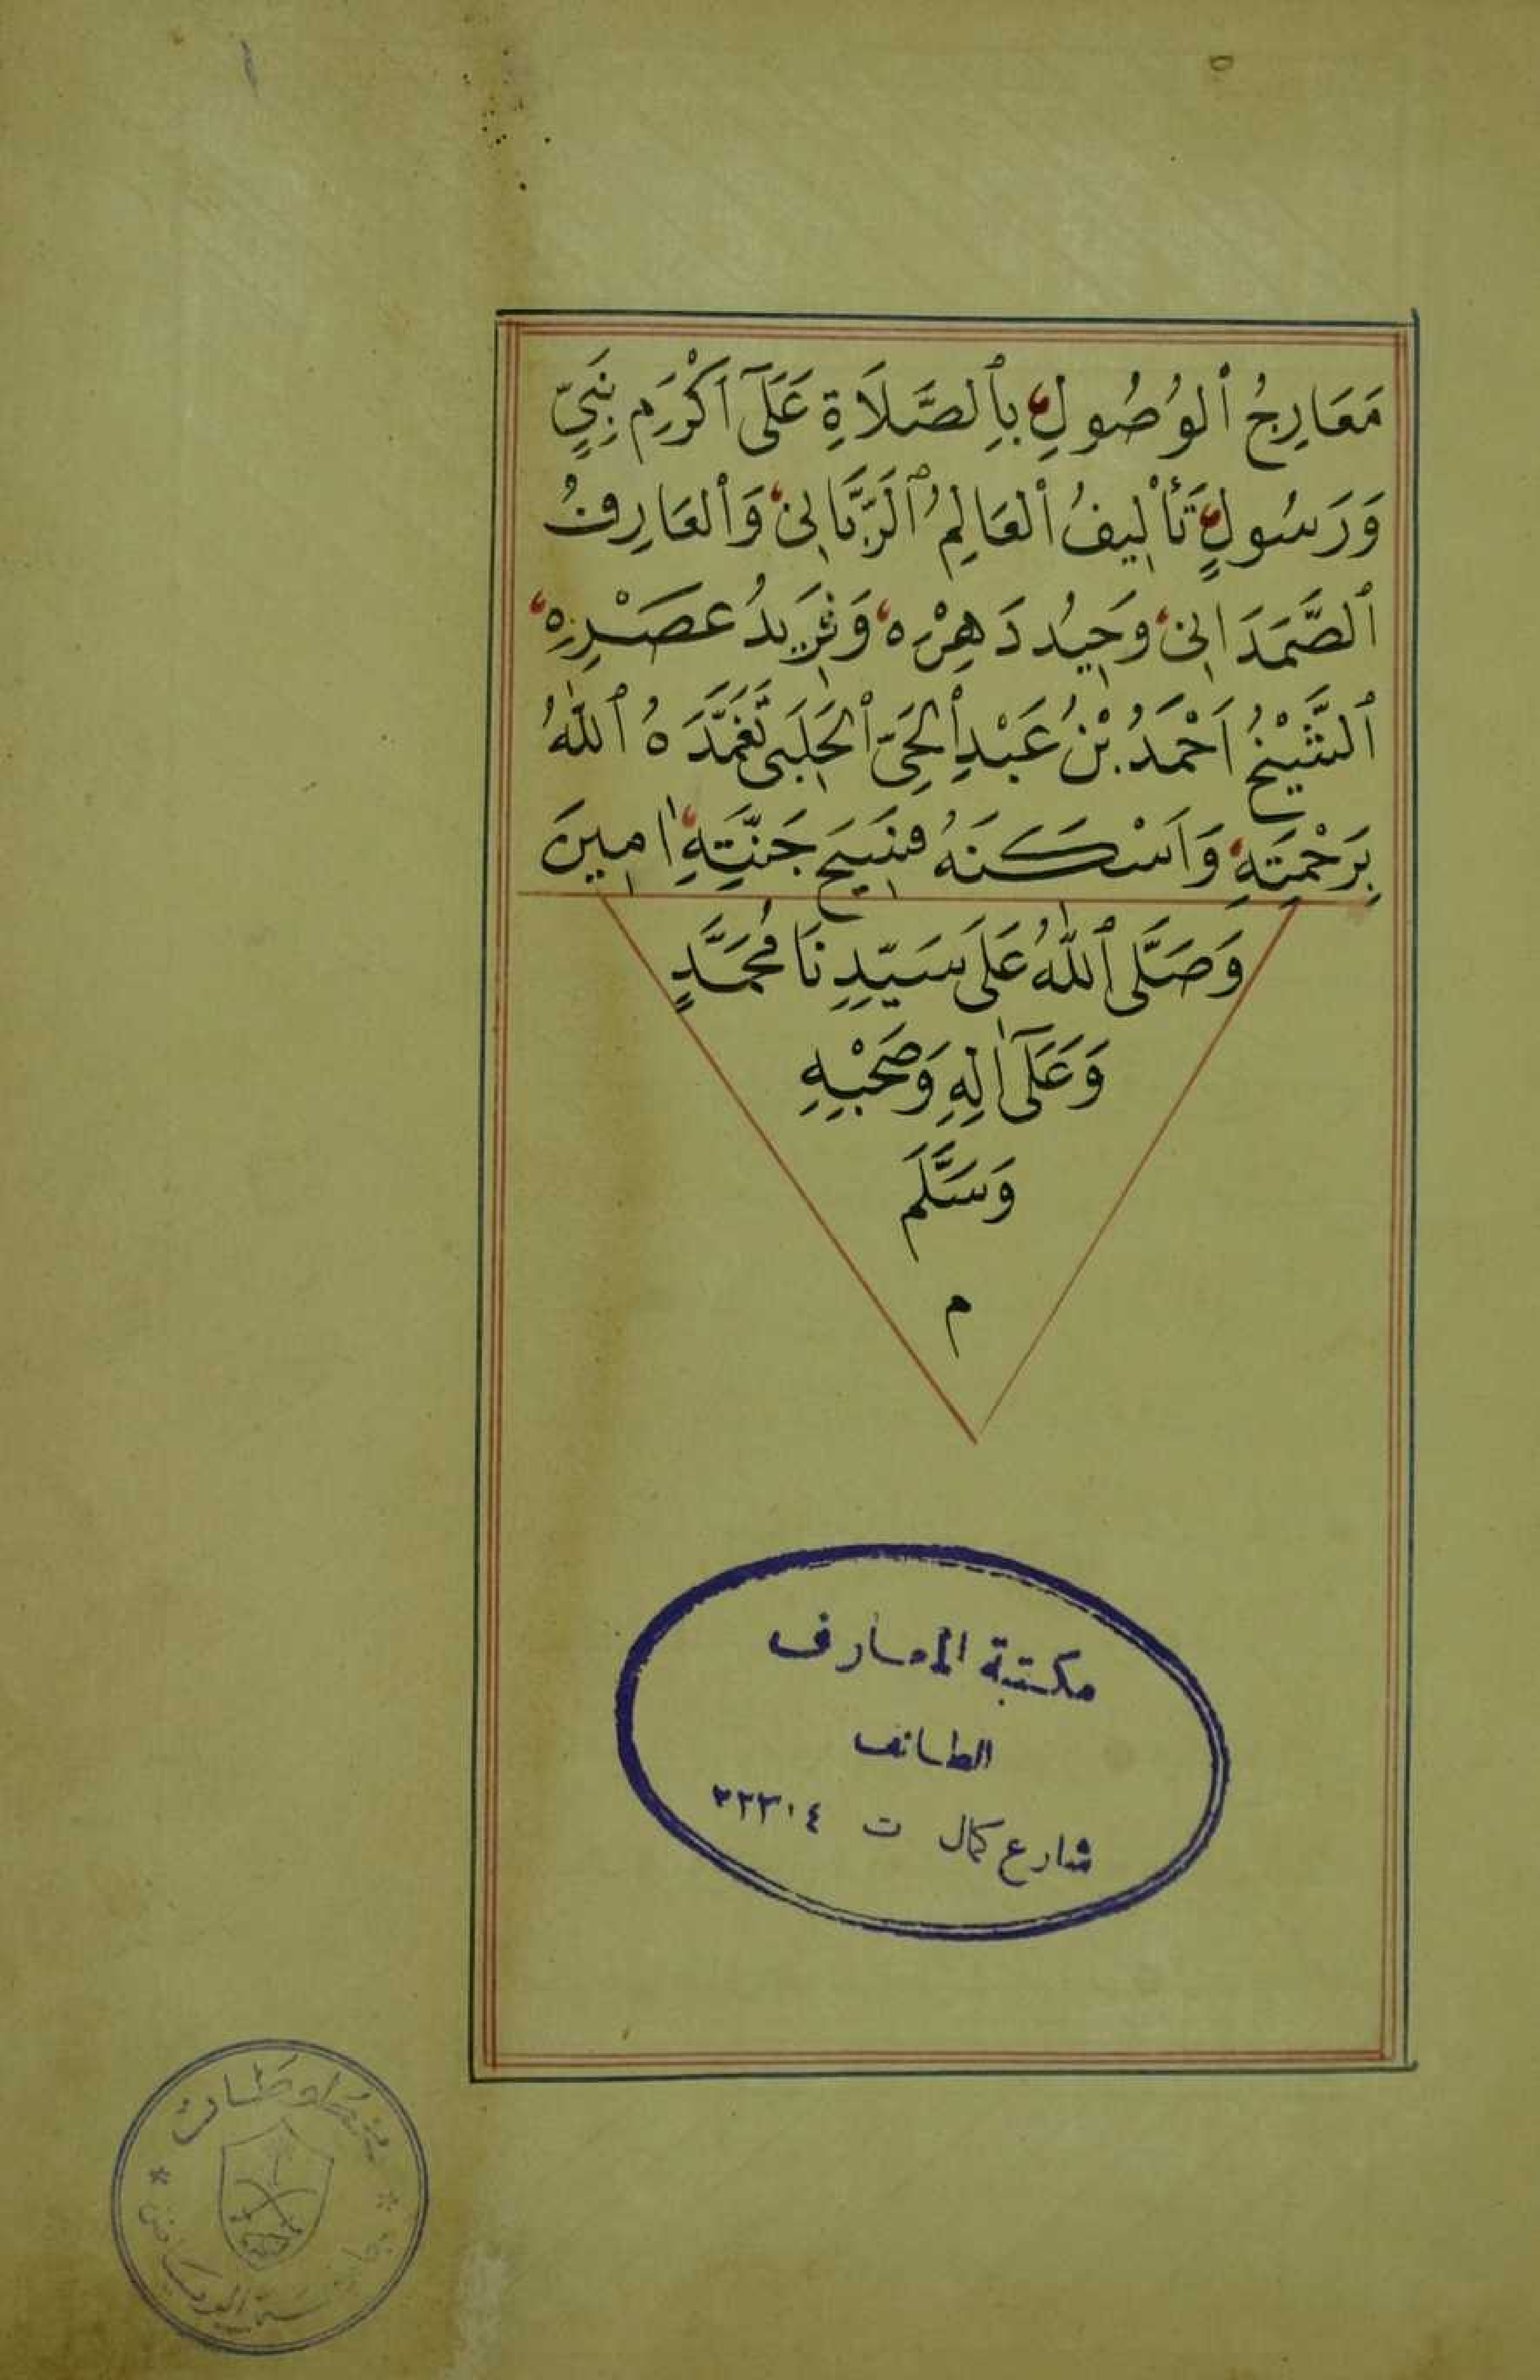 مَعَارِجُ ٱلْوُصُولِ بِٱلصَّلَاةِ عَلَىٓ اَكْرَمِ نَبِيٍّ
وَرَسُولٍ تَأْلِيفُ ٱلْعَالِمِ ٱلرَّبَّانِى وَٱلْعَارِفُ
ٱلصَّمَدَانِى وَحِيْدُ دَهْرِهِ وَفَرِيدُ عَصْرِهِ
ٱلشَّيْخُ اَحْمَدُ بْنُ عَبْدِ ٱلْحَىِّ ٱلْحَلَبِى تَغَمَّدَهُ ٱللّٰهُ
بِرَحْمَتِهِ وَاَسْكَنَهُ فَسِيحَ جَنَّتِهِ اٰمِينَ
وَصَلَّى ٱللّٰهُ عَلَى سَيِّدِنَا مُحَمَّدٍ
وَعَلَىٓ اٰلِهِ وَصَحْبِهِ
وَسَلَّمَ
م
مكتبة المعارف
الطائف
شارع كمال ت ٢٢٣١٤